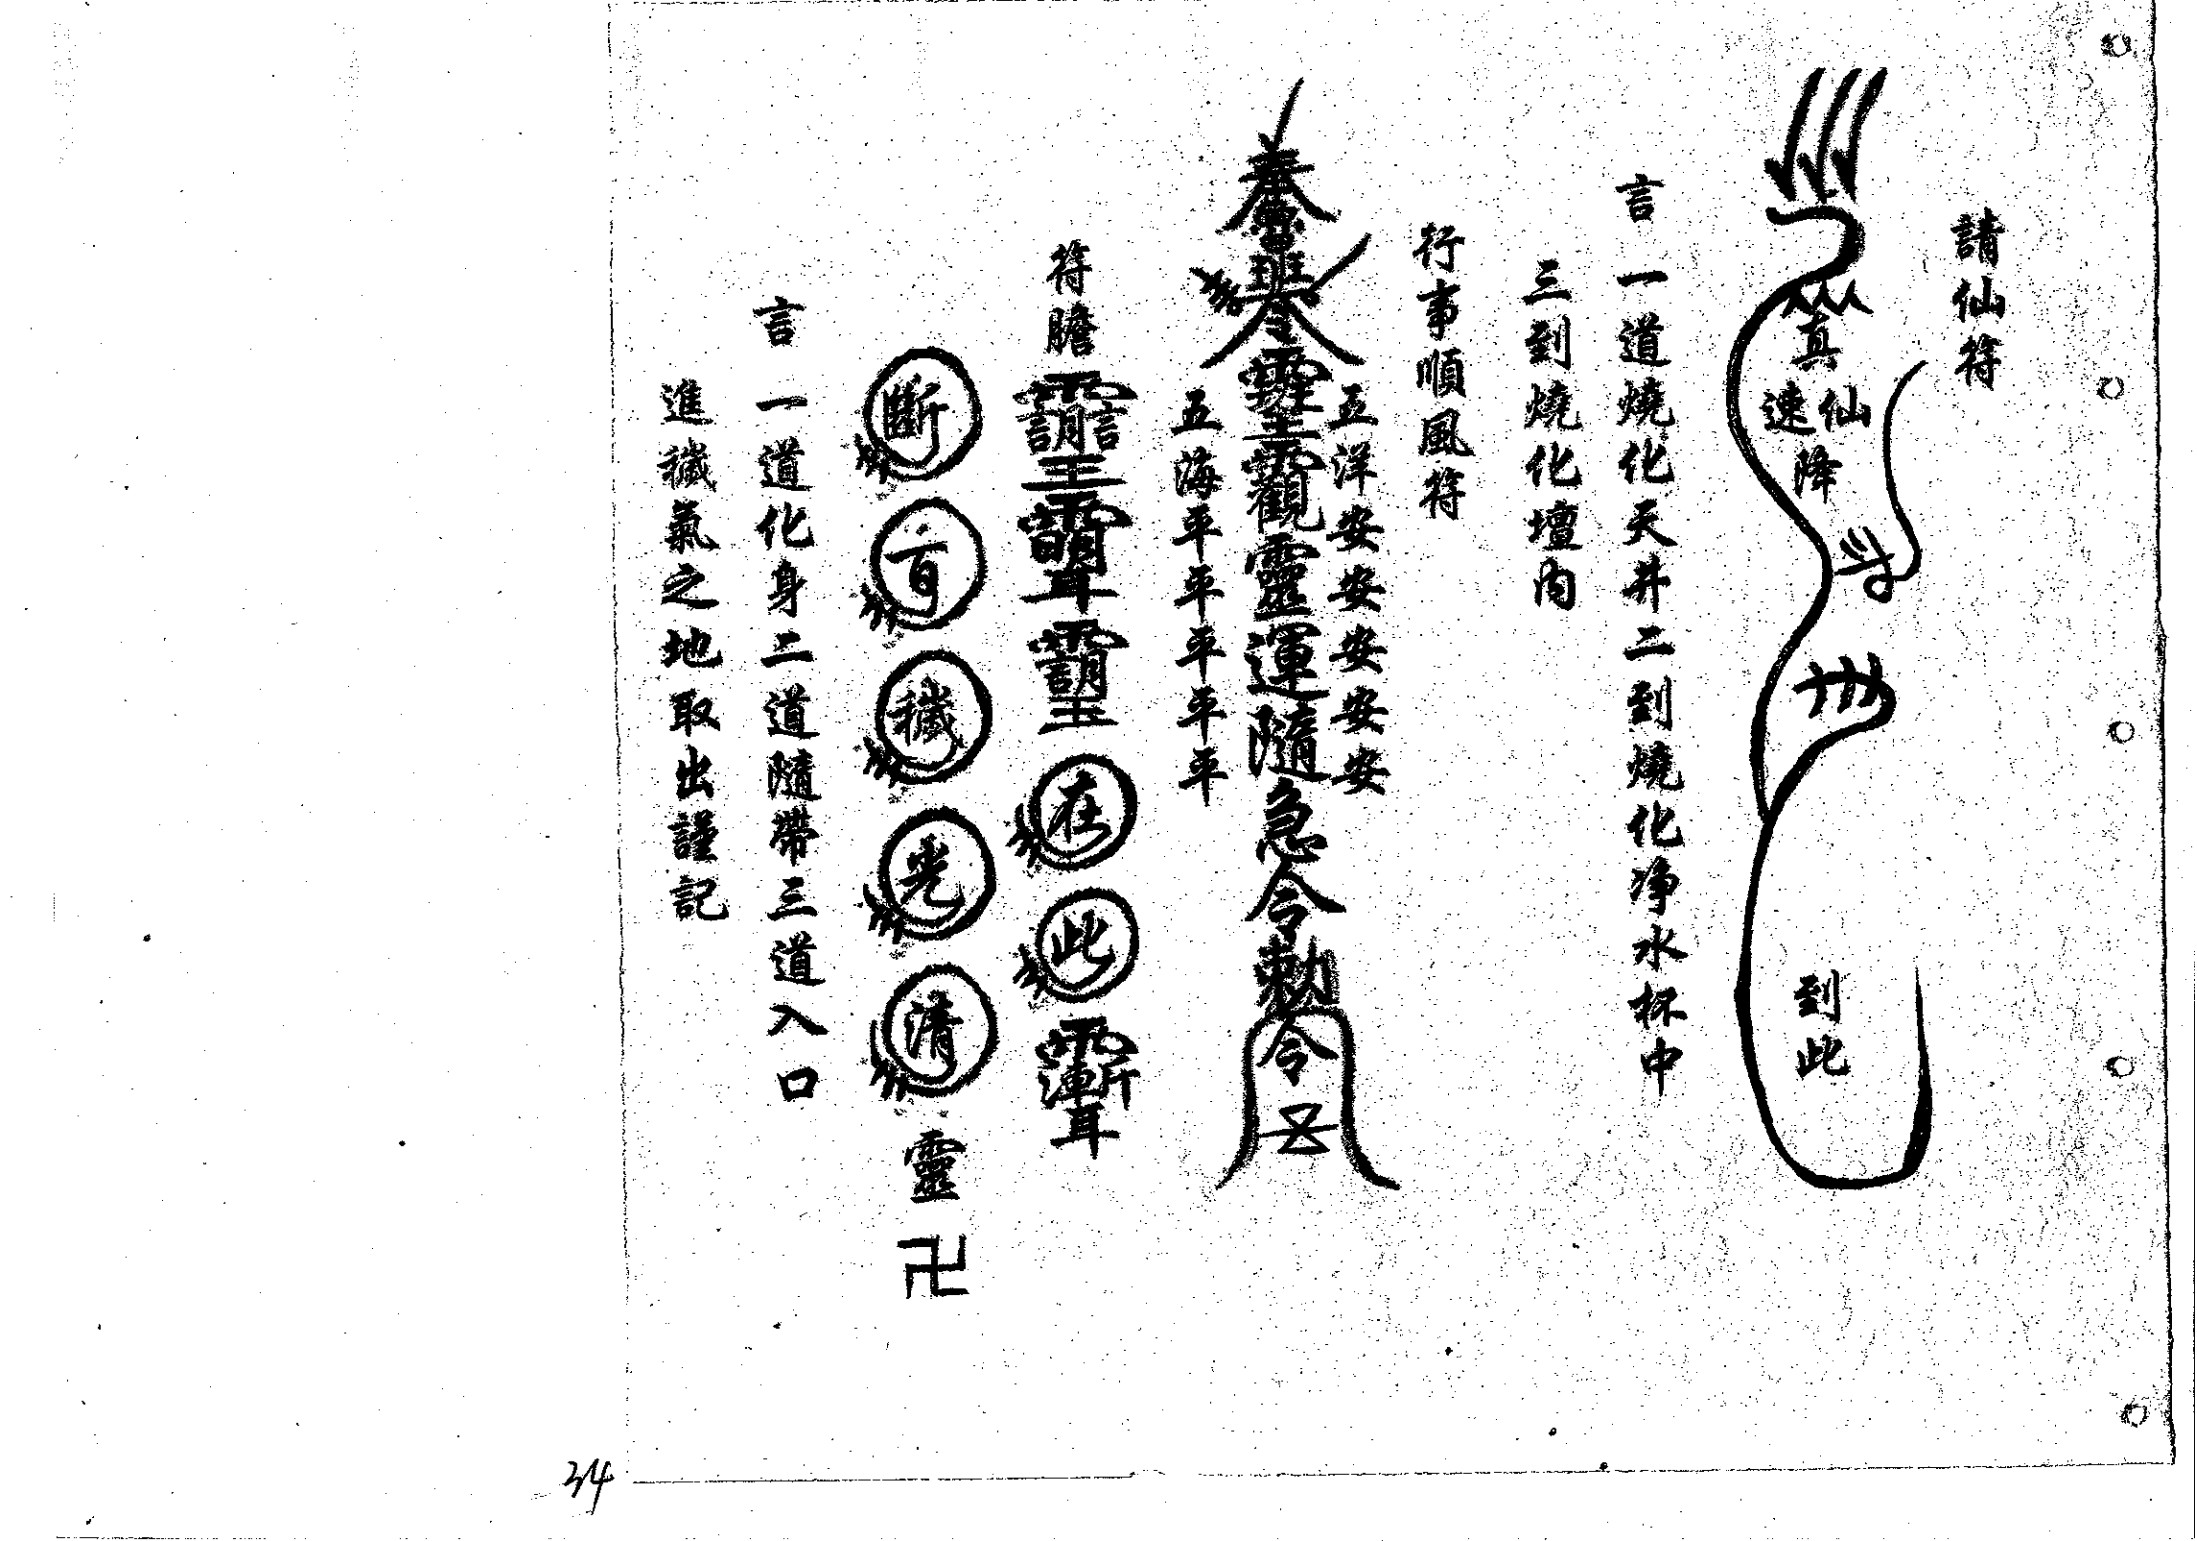 請仙符
真
仙
速
降
到此
言 一道燒化天井二到燒化淨水杯中
三到燒化壇內
行事順風符
五洋安安安安安
奉魯班令 觀靈運隨急令勅令
五海平平平平平
符膽
在此
斷
穢
光清靈卍
言 一道化身二道隨帶三道入口
進穢氣之地取出謹記
24